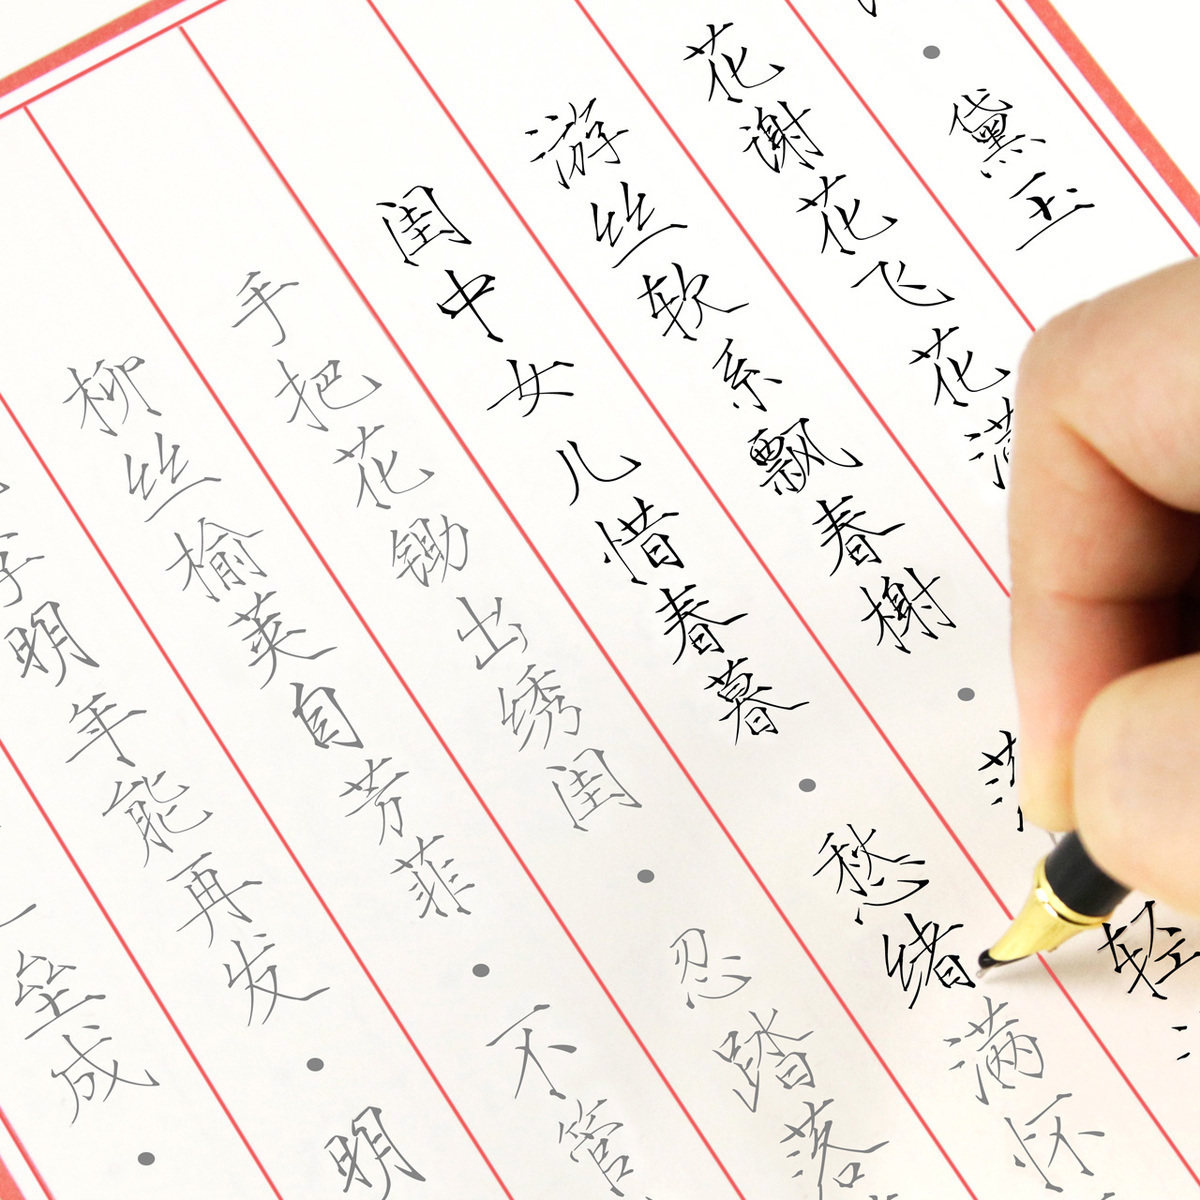 · 黛玉
花谢花飞花满
游丝软系飘春榭 · 落 轻
闺中女儿惜春暮 · 愁绪满怀
手把花锄出绣闺 · 忍踏落
柳丝榆荚自芳菲 · 不管
李明年能再发 · 明
垒成 ·